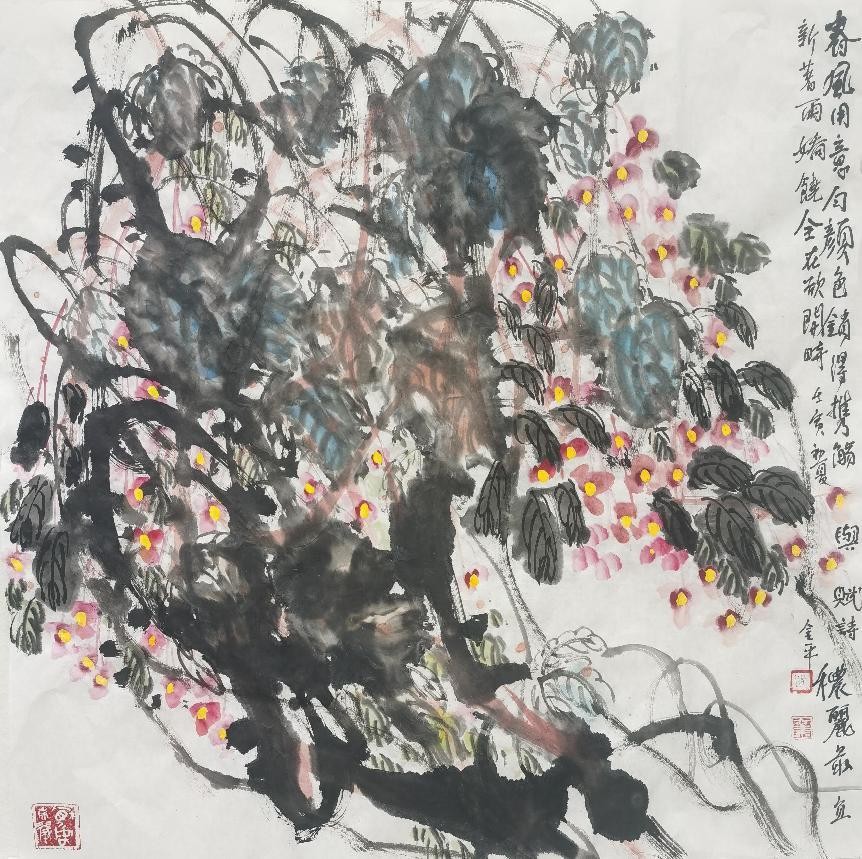 春風用意勻顏色銷得攜觴與賦詩穠麗最宜
新著雨嬌饒全在欲開時 壬寅初夏
金平